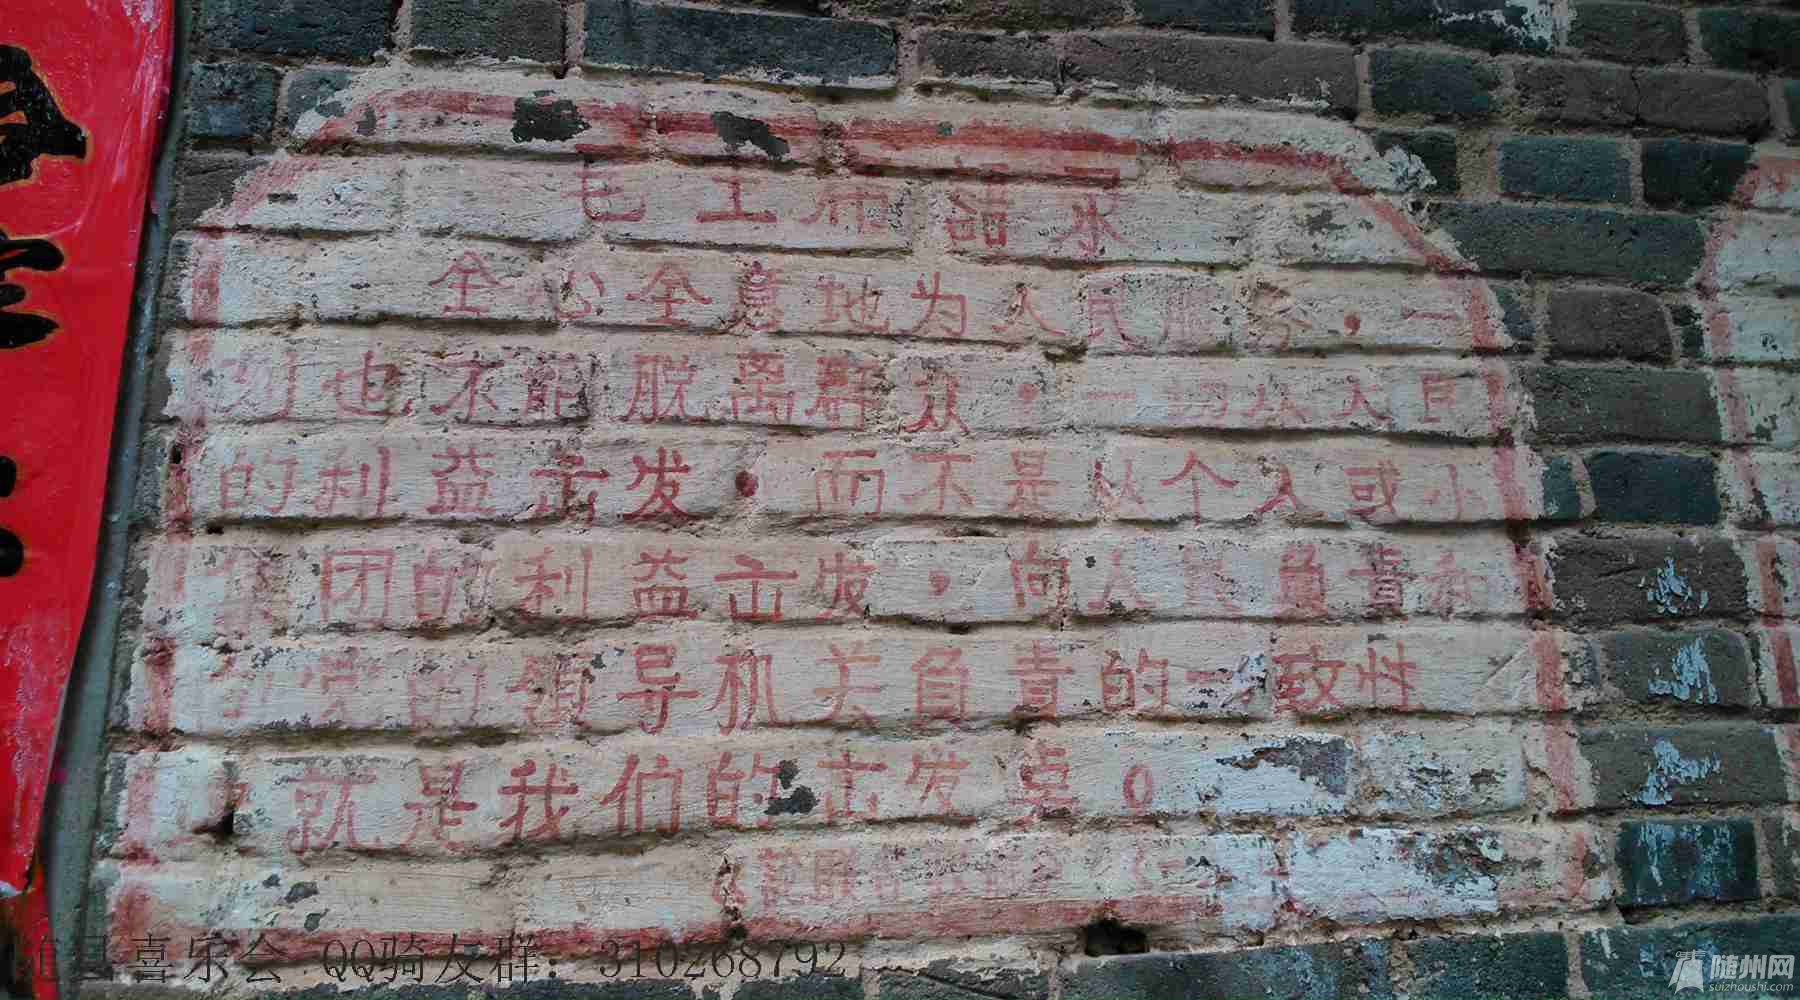 毛主席语录
全心全意地为人民服务，一
刻也不能脱离群众，一切从人民
的利益出发，而不是从个人或小
集团的利益出发，向人民负责和
向党的领导机关负责的一致性
就是我们的出发点。
《论联合政府》
喜乐会 QQ骑友群：310268792
随州网
suizhoushi.com